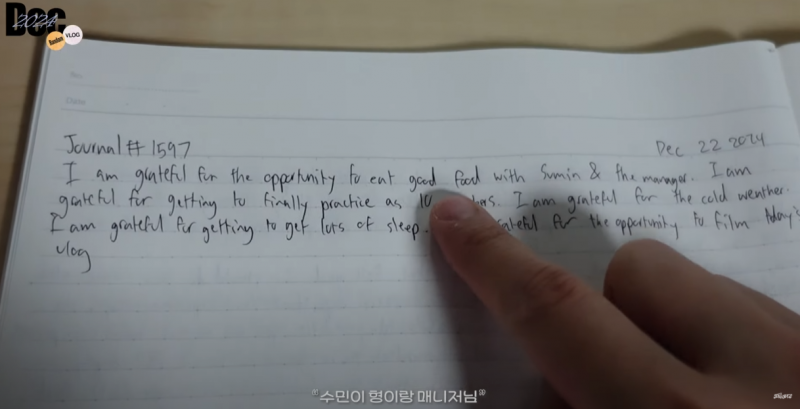 Dec
2024
VLOG
No.
Date
Journal # 1597
Dec 22 2024
I am grateful for the opportunity to eat good food with Sumin & the manager. I am
grateful for getting to finally practice as 10. I am grateful for the cold weather.
I am grateful for getting to get lots of sleep. grateful for the opportunity to film today's
vlog
"수민이 형이랑 매니저님"